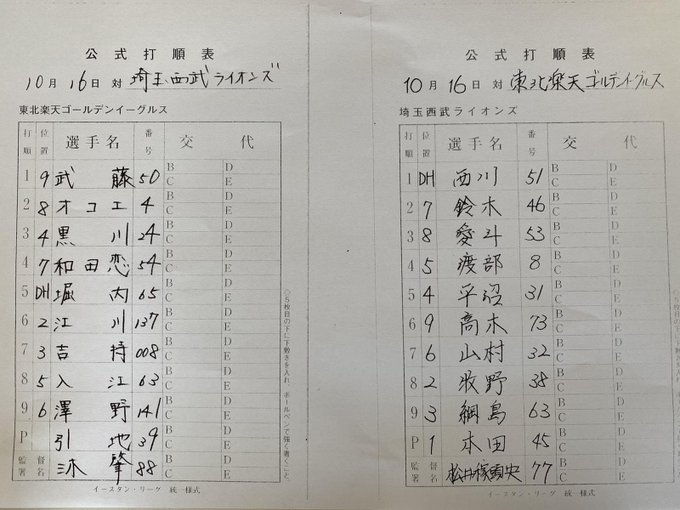 公式打順表
10月16日 対 埼玉西武ライオンズ
東北楽天ゴールデンイーグルス
打順 位置 選手名 番号 交代
1 9 武藤 50 B C D E
2 8 オコエ 4 B C D E
3 4 黒川 24 B C D E
4 7 和田恋 54 B C D E
5 DH 堀内 65 B C D E
6 2 江川 137 B C D E
7 3 吉持 008 B C D E
8 5 入江 63 B C D E
9 6 澤野 141 B C D E
P 引地 39 B C D E
監督署名 三木肇 88 B C D E
イースタン・リーグ 統一様式
◇5枚目の下に下敷きを入れ、ボールペンで強く書くこと。
公式打順表
10月16日 対 東北楽天ゴールデンイーグルス
埼玉西武ライオンズ
打順 位置 選手名 番号 交代
1 DH 西川 51 B C D E
2 7 鈴木 46 B C D E
3 8 愛斗 53 B C D E
4 5 渡部 8 B C D E
5 4 平沼 31 B C D E
6 9 高木 73 B C D E
7 6 山村 32 B C D E
8 2 牧野 38 B C D E
9 3 綱島 63 B C D E
P 1 本田 45 B C D E
監督署名 松井稼頭央 77 B C D E
イースタン・リーグ 統一様式
◇5枚目の下に下敷きを入れ、ボールペンで強く書くこと。